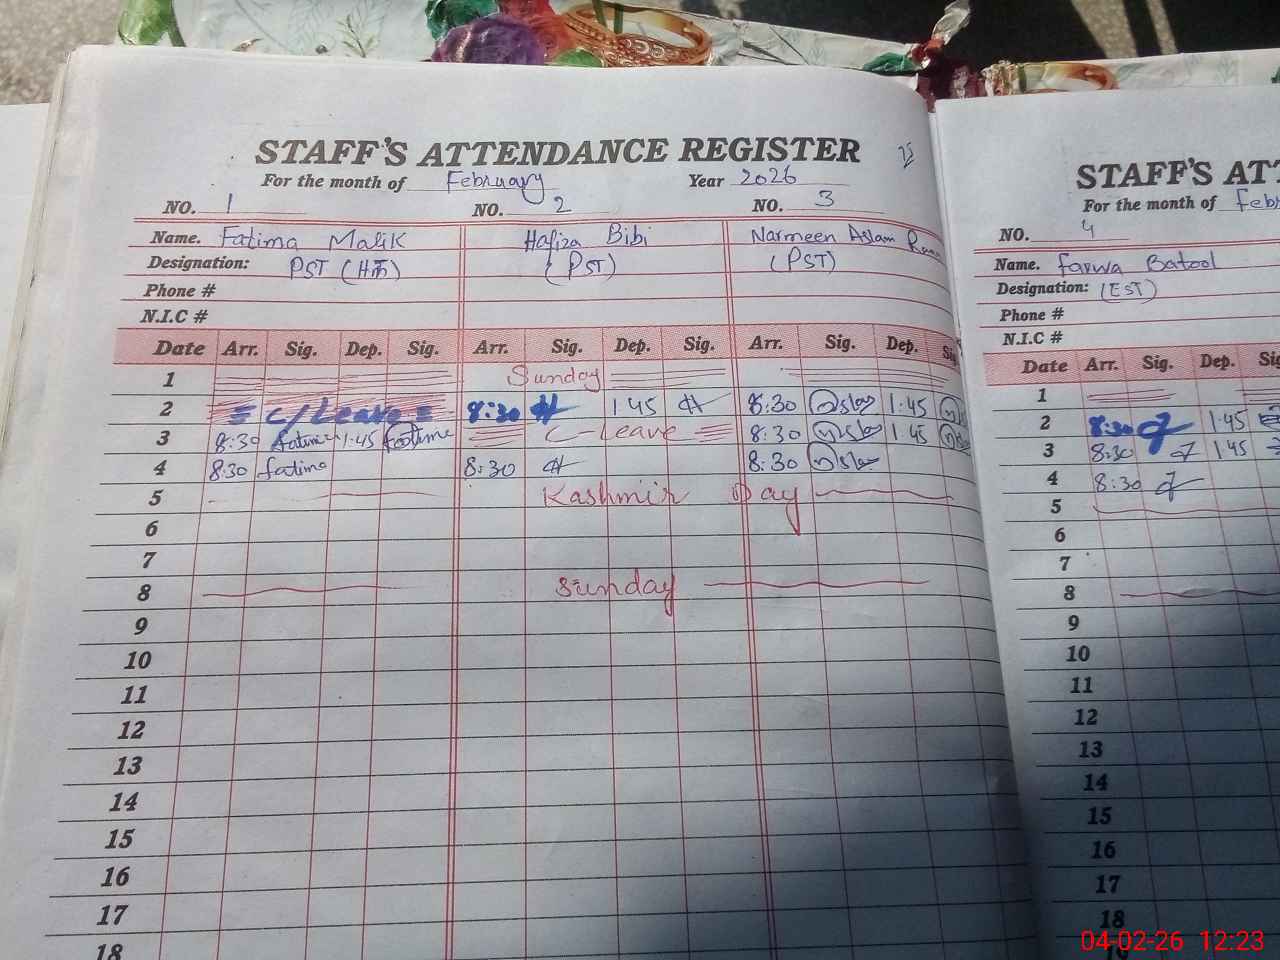 STAFF'S ATTENDANCE REGISTER
For the month of February Year 2026
NO. 1 NO. 2 NO. 3
Name. Fatima Malik Hafiza Bibi Narmeen Aslam
Designation: PST (HM) (PST) (PST)
Phone #
N.I.C #
Date Arr. Sig. Dep. Sig. Arr. Sig. Dep. Sig. Arr. Sig. Dep. Sig
1 Sunday
2 C/Leave 8:30 1:45 8:30 1:45
3 8:30 fatima 1:45 fatima C-Leave 8:30 1:45
4 8:30 fatima 8:30 8:30
5 Kashmir Day
6
7
8 Sunday
9
10
11
12
13
14
15
16
17
18
STAFF'S ATT
For the month of Feb
NO. 4
Name. Farwa Batool
Designation: (EST)
Phone #
N.I.C #
Date Arr. Sig. Dep. Si
1
2 8:30 1:45
3 8:30 1:45
4 8:30
5
6
7
8
9
10
11
12
13
14
15
16
17
18
19
04-02-26 12:23